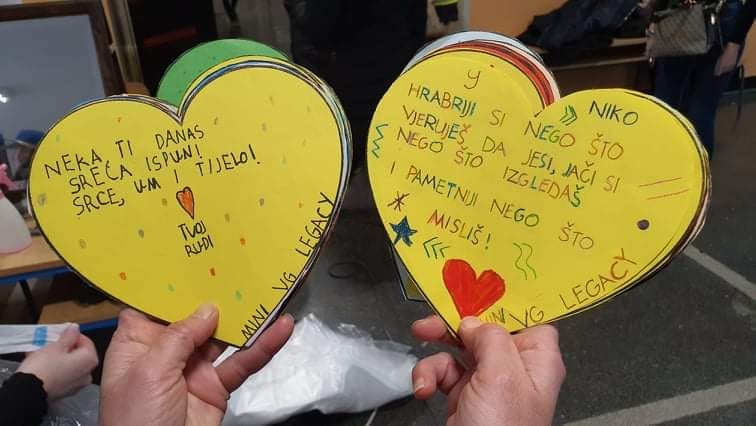 NEKA TI DANAS
SREĆA ISPUNI
SRCE, UM I TIJELO!
TVOJ
RUDI
MINI VG LEGACY
Y
NIKO
HRABRIJI SI NEGO ŠTO
VJERUJEŠ DA JESI, JAČI SI
NEGO ŠTO IZGLEDAŠ
I PAMETNIJI NEGO ŠTO
MISLIŠ!
MINI VG LEGACY